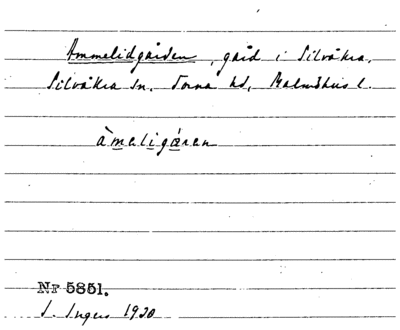 Ammelidgården, gård i Silvåkra,
Silvåkra sn. Torna hd, Malmöhus l.
àmeligáren
Nr 5851.
I. Ingers 1930